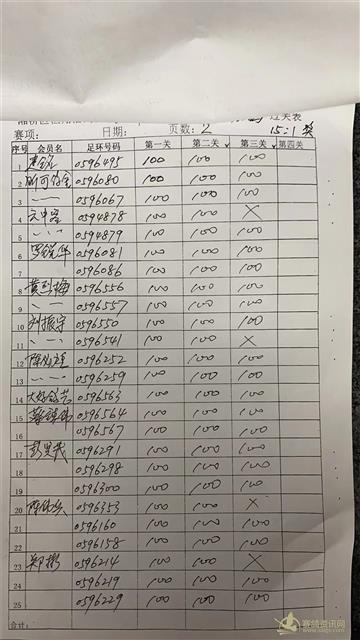 过关表
赛项: 日期: 页数: 2 15:1 奖
序号 会员名 足环号码 第一关 第二关 第三关 第四关
1 0596495 100 100 100
2 0596080 100 100 100
3 〃 0596067 100 100 100
4 0594878 100 100 ×
5 〃 0594879 100 100 100
6 0596081 100 100 100
7 0596086 100 100 100
8 0596556 100 100 100
9 〃 0596557 100 100 100
10 刘振宇 0596550 100 100 100
11 〃 0596541 100 100 ×
12 0596252 100 100 100
13 〃 0596259 100 100 100
14 0596563 100 100 100
15 0596564 100 100 100
16 0596567 100 100 100
17 0596291 100 100 100
18 0596298 100 100 100
19 0596300 100 100 100
20 0596353 100 100 ×
21 0596160 100 100 100
22 0596158 100 100 100
23 郑彬 0596214 100 100 ×
24 0596219 100 100 100
25 0596229 100 100 100
合计:
赛鸽资讯网